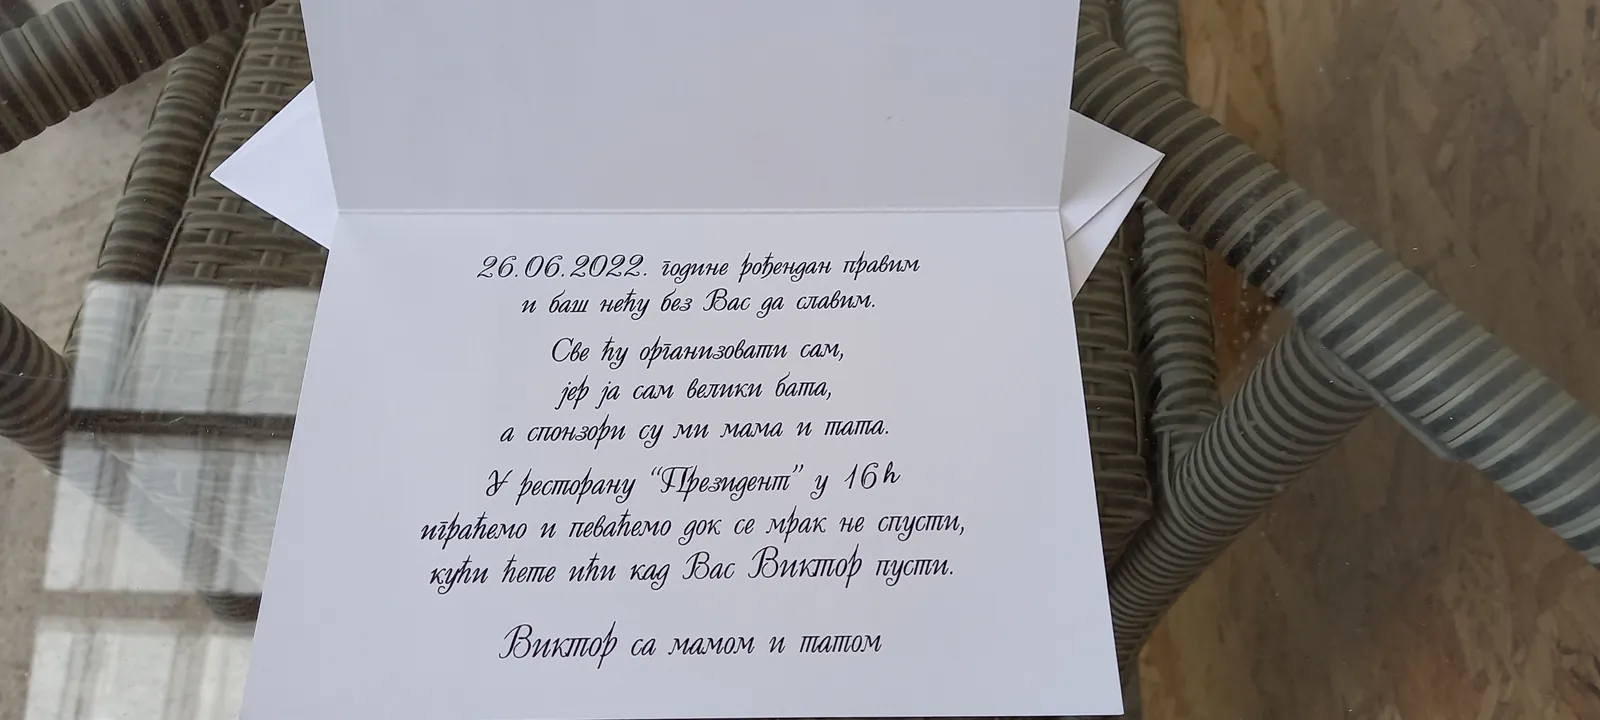 26.06.2022. године рођендан правим
и баш нећу без Вас да славим.
Све ћу организовати сам,
јер ја сам велики бата,
а спонзори су ми мама и тата.
У ресторану “Президент” у 16h
играћемо и певаћемо док се мрак не спусти,
кући ћете ићи кад Вас Виктор пусти.
Виктор са мамом и татом